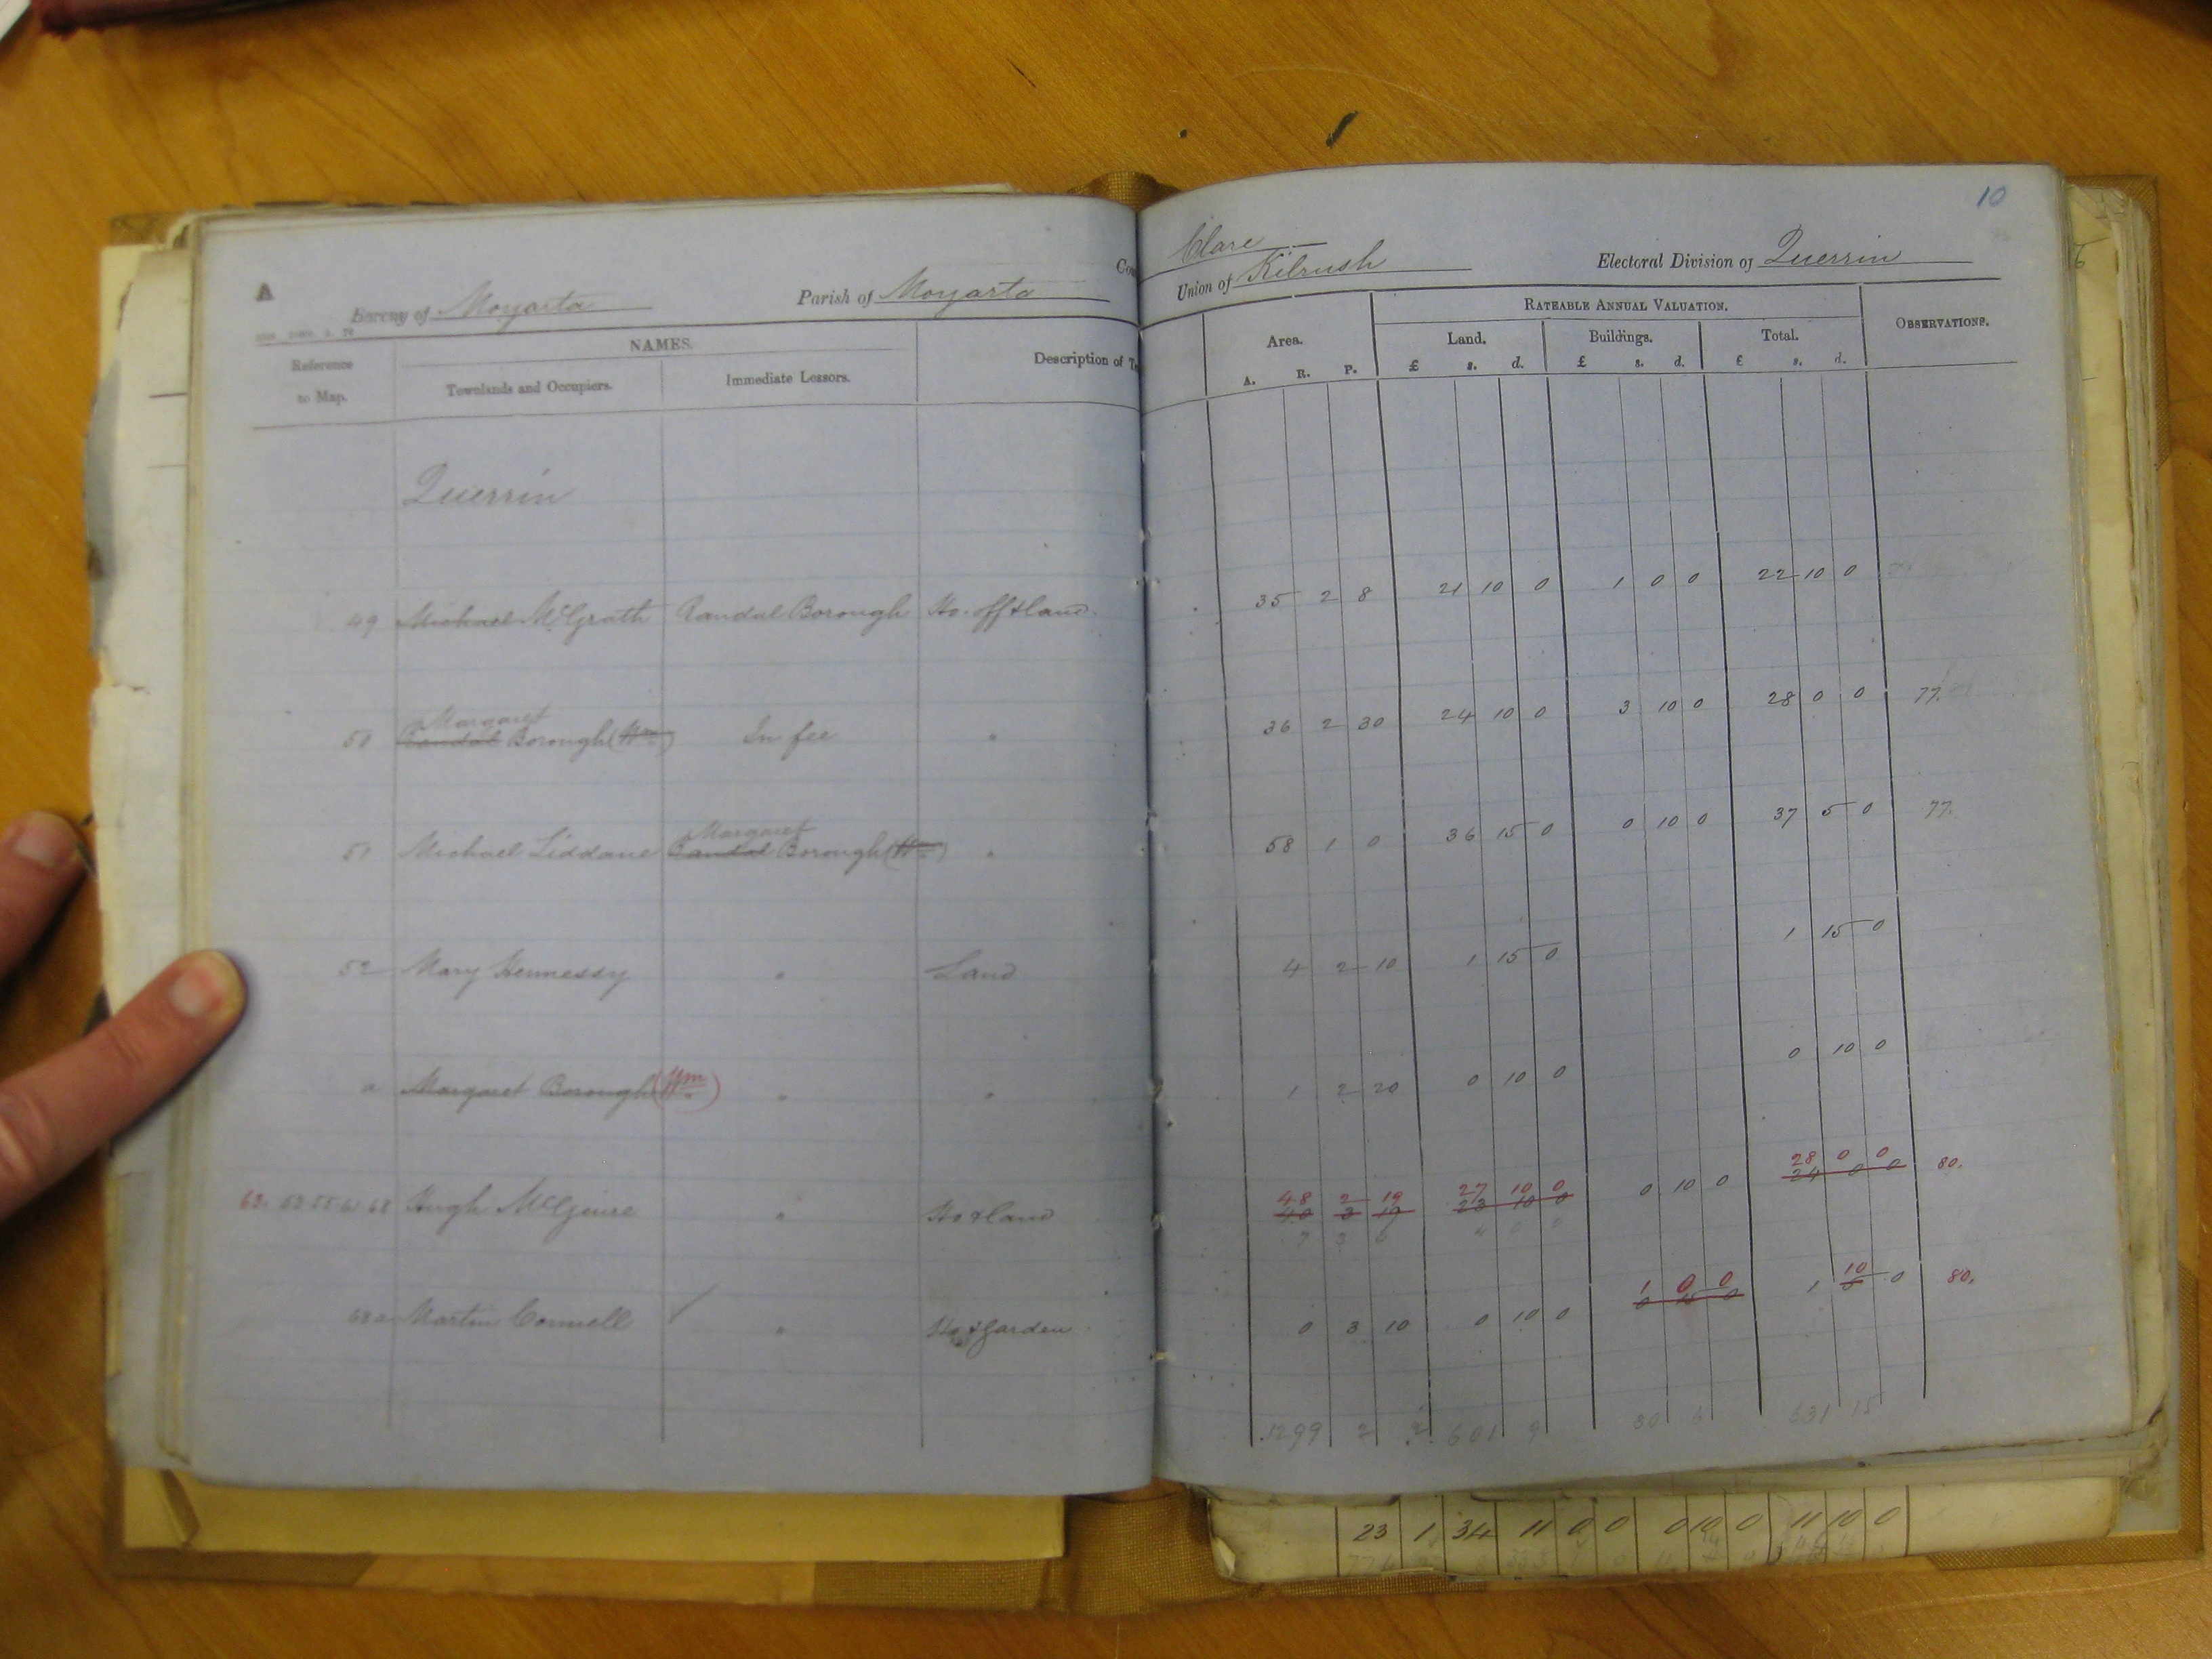 10
A
Cou Clare
Barony of Moyarta Parish of Moyarta Union of Kilrush Electoral Division of Querrin
Reference to Map. NAMES. Description of Te Area. RATEABLE ANNUAL VALUATION. OBSERVATIONS.
Townlands and Occupiers. Immediate Lessors. Land. Buildings. Total.
A. R. P. £ s. d. £ s. d. £ s. d.
Querrin
49 Michael McGrath Randal Borough Ho. off & land. 35 2 8 21 10 0 1 0 0 22 10 0
Margaret
50 Randal Borough (Wm) In fee " 36 2 30 24 10 0 3 10 0 28 0 0 77.
Margaret
51 Michael Liddane Randal Borough (Wm) " 58 1 0 36 15 0 0 10 0 37 5 0 77.
52 Mary Hennessy " Land 4 2 10 1 15 0 1 15 0
a Margaret Borough (Wm) " " 1 2 20 0 10 0 0 10 0
48 2 19 27 10 0 28 0 0
53.55.61.68 Hugh McGuire " Ho & land 40 3 19 23 10 0 0 10 0 24 0 0 80.
7 3 0 4 0 0
1 0 0 10
68a Martin Connell " Ho & garden 0 3 10 0 10 0 0 15 0 1 5 0 80.
1299 2 601 9 30 6 631 15
23 1 34 11 0 0 0 10 0 11 10 0